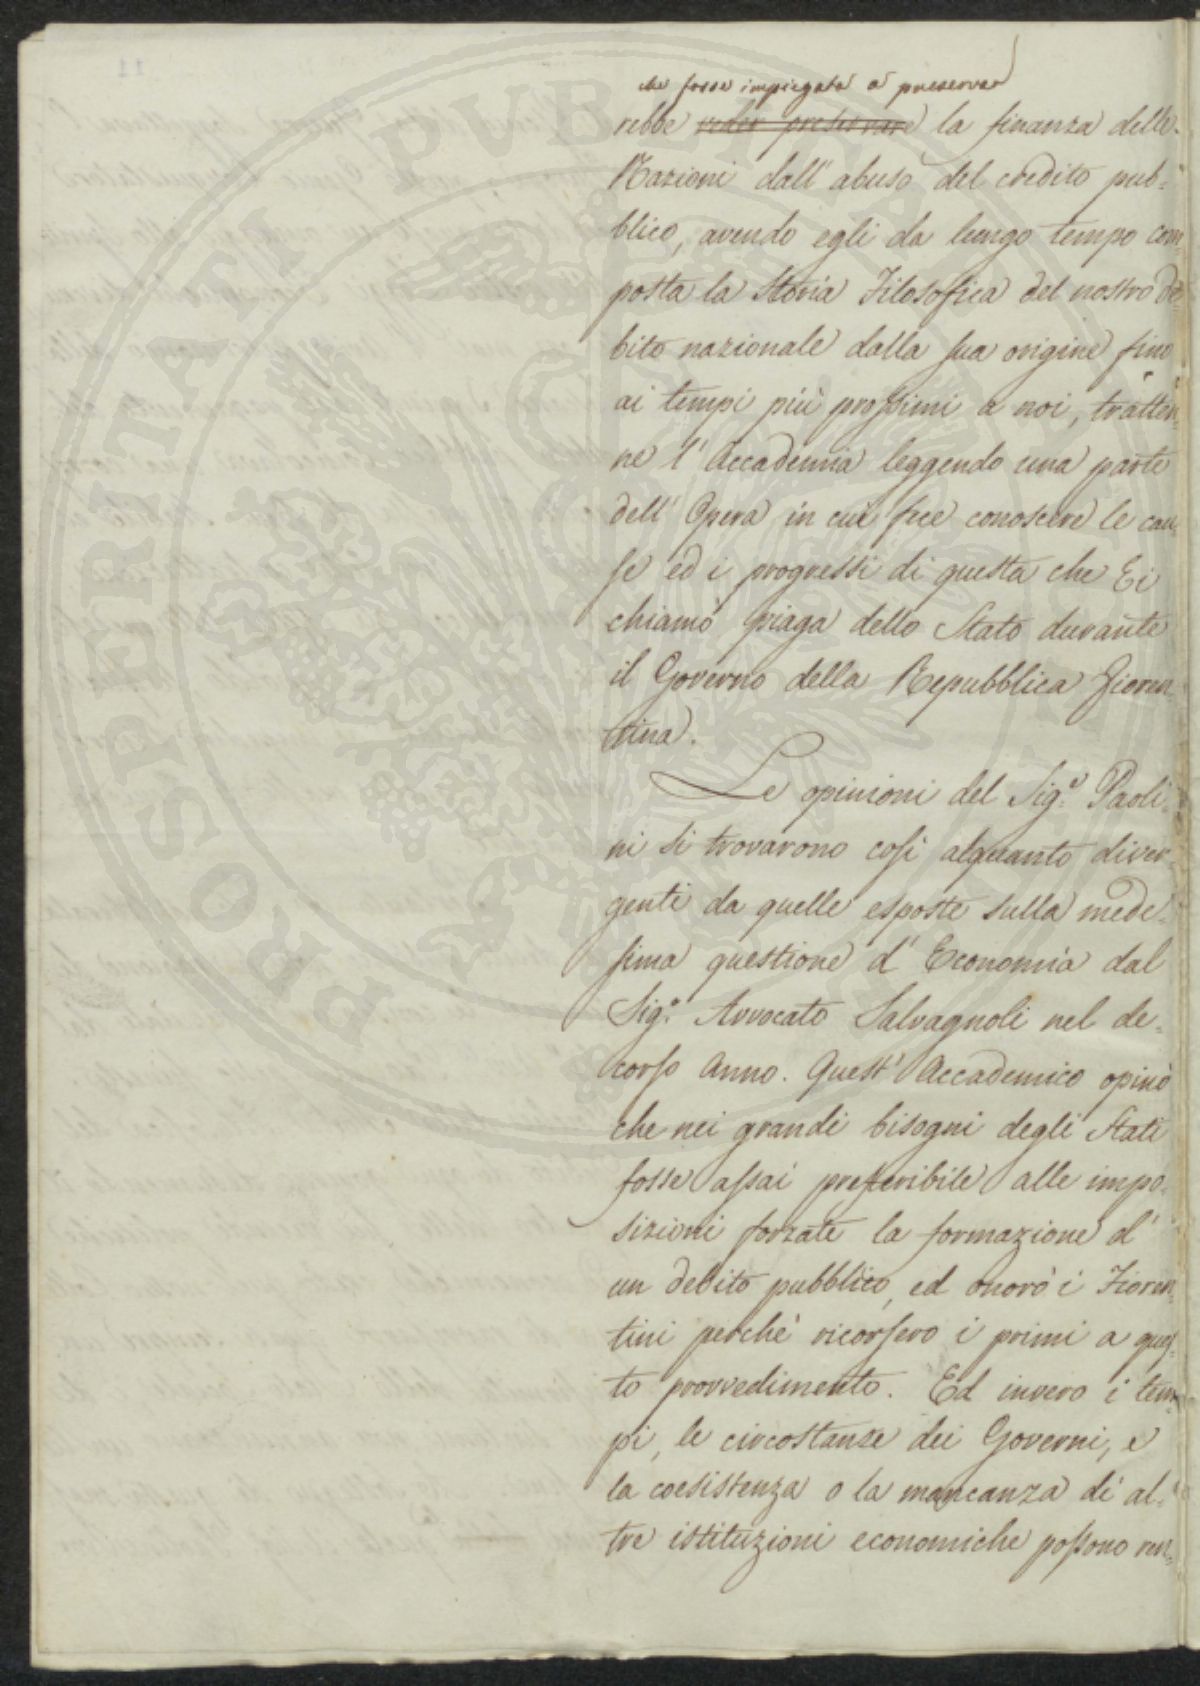 che fosse impiegata a preservar
rebbe veder preservare la finanza delle
Nazioni dall' abuso del credito pub=
blico, avendo egli da lungo tempo com
posta la Storia Filosofica del nostro de
bito nazionale dalla sua origine fino
ai tempi più prossimi a noi, tratten
ne l' Accademia leggendo una parte
dell' Opera in cui fece conoscere le cau
se ed i progressi di questa che Ei
chiamò piaga dello Stato durante
il Governo della Repubblica Fioren
tina.
Le opinioni del Sig.e Paoli=
ni si trovarono così alquanto diver
genti da quelle esposte sulla mede=
sima questione d' Economia dal
Sig.e Avvocato Salvagnoli nel de=
corso Anno. Quest' Accademico opinò
che nei grandi bisogni degli Stati
fosse assai preferibile alle impo=
sizioni forzate la formazione d'
un debito pubblico, ed onorò i Fioren
tini perchè ricorsero i primi a ques=
to provvedimento. Ed invero i tem
pi, le circostanze dei Governi, e
la coesistenza o la mancanza di al=
tre istituzioni economiche possono ren=
PROSPERITATI PUBLICAE